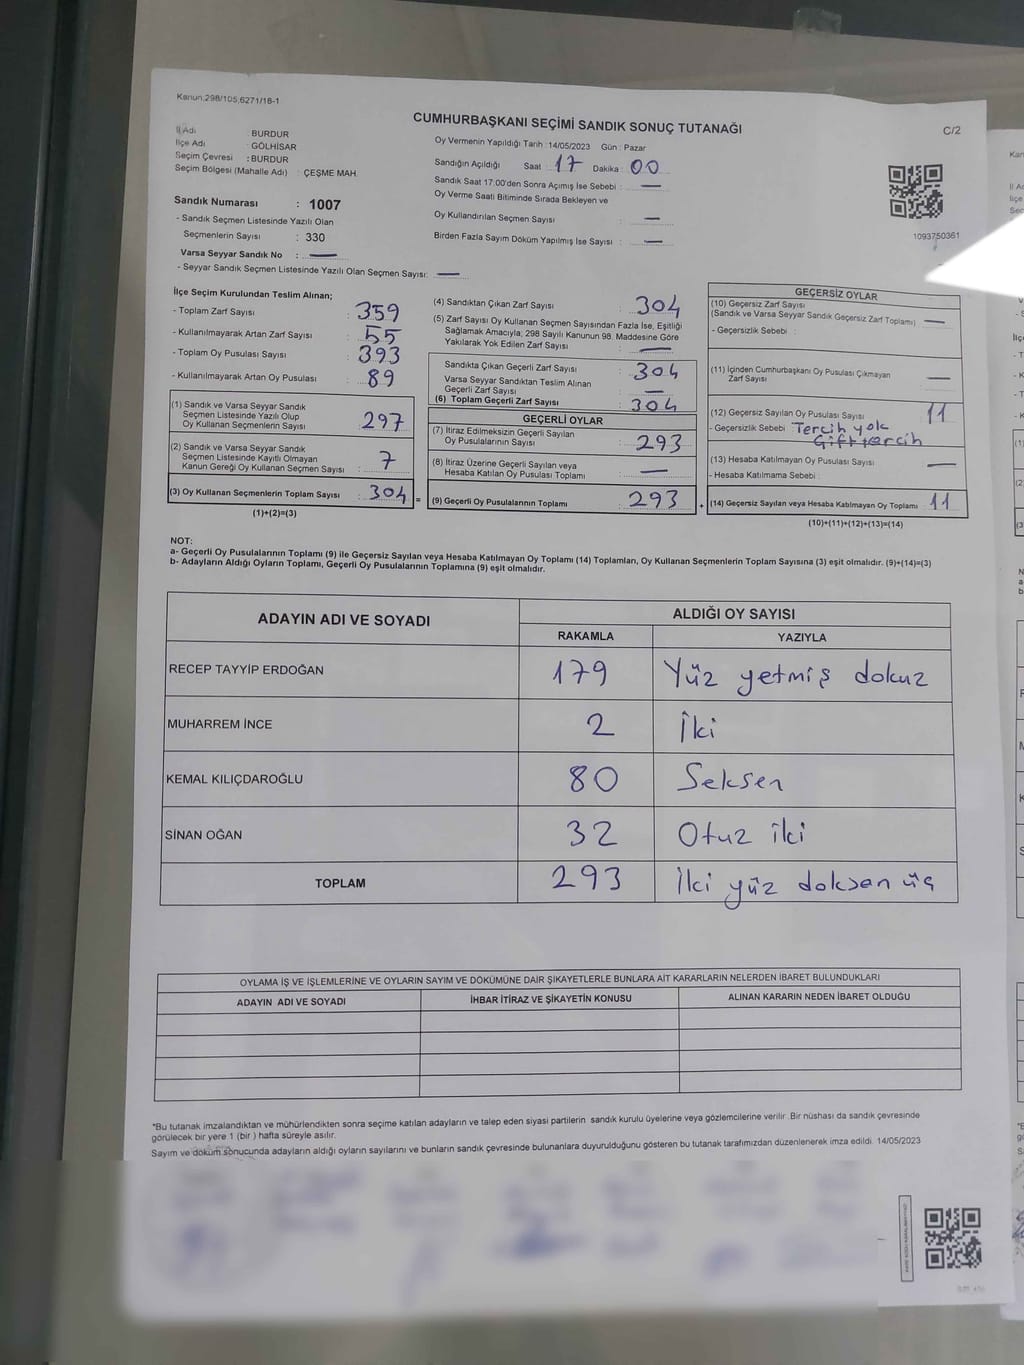 Kanun,298/105,6271/18-1
CUMHURBAŞKANI SEÇİMİ SANDIK SONUÇ TUTANAĞI
C/2
İl Adı : BURDUR
İlçe Adı : GÖLHİSAR
Seçim Çevresi : BURDUR
Seçim Bölgesi (Mahalle Adı) : ÇEŞME MAH.
Sandık Numarası : 1007
- Sandık Seçmen Listesinde Yazılı Olan
Seçmenlerin Sayısı : 330
Varsa Seyyar Sandık No : —
- Seyyar Sandık Seçmen Listesinde Yazılı Olan Seçmen Sayısı: —
Oy Vermenin Yapıldığı Tarih :14/05/2023 Gün : Pazar
Sandığın Açıldığı Saat : 17 Dakika : 00
Sandık Saat 17.00'den Sonra Açımış İse Sebebi : —
Oy Verme Saati Bitiminde Sırada Bekleyen ve
Oy Kullandırılan Seçmen Sayısı : —
Birden Fazla Sayım Döküm Yapılmış İse Sayısı : —
1093750361
İlçe Seçim Kurulundan Teslim Alınan;
- Toplam Zarf Sayısı : 359
- Kullanılmayarak Artan Zarf Sayısı : 55
- Toplam Oy Pusulası Sayısı : 393
- Kullanılmayarak Artan Oy Pusulası : 89
(1) Sandık ve Varsa Seyyar Sandık
Seçmen Listesinde Yazılı Olup
Oy Kullanan Seçmenlerin Sayısı : 297
(2) Sandık ve Varsa Seyyar Sandık
Seçmen Listesinde Kayıtlı Olmayan
Kanun Gereği Oy Kullanan Seçmen Sayısı : 7
(3) Oy Kullanan Seçmenlerin Toplam Sayısı : 304
(1)+(2)=(3)
=
(4) Sandıktan Çıkan Zarf Sayısı : 304
(5) Zarf Sayısı Oy Kullanan Seçmen Sayısından Fazla İse, Eşitliği
Sağlamak Amacıyla; 298 Sayılı Kanunun 98. Maddesine Göre
Yakılarak Yok Edilen Zarf Sayısı : —
Sandıkta Çıkan Geçerli Zarf Sayısı : 304
Varsa Seyyar Sandıktan Teslim Alınan
Geçerli Zarf Sayısı : —
(6) Toplam Geçerli Zarf Sayısı : 304
GEÇERLİ OYLAR
(7) İtiraz Edilmeksizin Geçerli Sayılan
Oy Pusulalarının Sayısı : 293
(8) İtiraz Üzerine Geçerli Sayılan veya
Hesaba Katılan Oy Pusulası Toplamı : —
(9) Geçerli Oy Pusulalarının Toplamı : 293
+
GEÇERSİZ OYLAR
(10) Geçersiz Zarf Sayısı
(Sandık ve Varsa Seyyar Sandık Geçersiz Zarf Toplamı) : —
- Geçersizlik Sebebi :
(11) İçinden Cumhurbaşkanı Oy Pusulası Çıkmayan
Zarf Sayısı : —
(12) Geçersiz Sayılan Oy Pusulası Sayısı : 11
- Geçersizlik Sebebi : Tercih yok
Çift tercih
(13) Hesaba Katılmayan Oy Pusulası Sayısı : —
- Hesaba Katılmama Sebebi :
(14) Geçersiz Sayılan veya Hesaba Katılmayan Oy Toplamı : 11
(10)+(11)+(12)+(13)=(14)
NOT:
a- Geçerli Oy Pusulalarının Toplamı (9) ile Geçersiz Sayılan veya Hesaba Katılmayan Oy Toplamı (14) Toplamları, Oy Kullanan Seçmenlerin Toplam Sayısına (3) eşit olmalıdır. (9)+(14)=(3)
b- Adayların Aldığı Oyların Toplamı, Geçerli Oy Pusulalarının Toplamına (9) eşit olmalıdır.
ADAYIN ADI VE SOYADI
ALDIĞI OY SAYISI
RAKAMLA YAZIYLA
RECEP TAYYİP ERDOĞAN 179 Yüz yetmiş dokuz
MUHARREM İNCE 2 İki
KEMAL KILIÇDAROĞLU 80 Seksen
SİNAN OĞAN 32 Otuz iki
TOPLAM 293 İki yüz doksan üç
OYLAMA İŞ VE İŞLEMLERİNE VE OYLARIN SAYIM VE DÖKÜMÜNE DAİR ŞİKAYETLERLE BUNLARA AİT KARARLARIN NELERDEN İBARET BULUNDUKLARI
ADAYIN ADI VE SOYADI İHBAR İTİRAZ VE ŞİKAYETİN KONUSU ALINAN KARARIN NEDEN İBARET OLDUĞU
*Bu tutanak imzalandıktan ve mühürlendikten sonra seçime katılan adayların ve talep eden siyasi partilerin sandık kurulu üyelerine veya gözlemcilerine verilir. Bir nüshası da sandık çevresinde
görülecek bir yere 1 (bir ) hafta süreyle asılır.
Sayım ve döküm sonucunda adayların aldığı oyların sayılarını ve bunların sandık çevresinde bulunanlara duyurulduğunu gösteren bu tutanak tarafımızdan düzenlenerek imza edildi. 14/05/2023